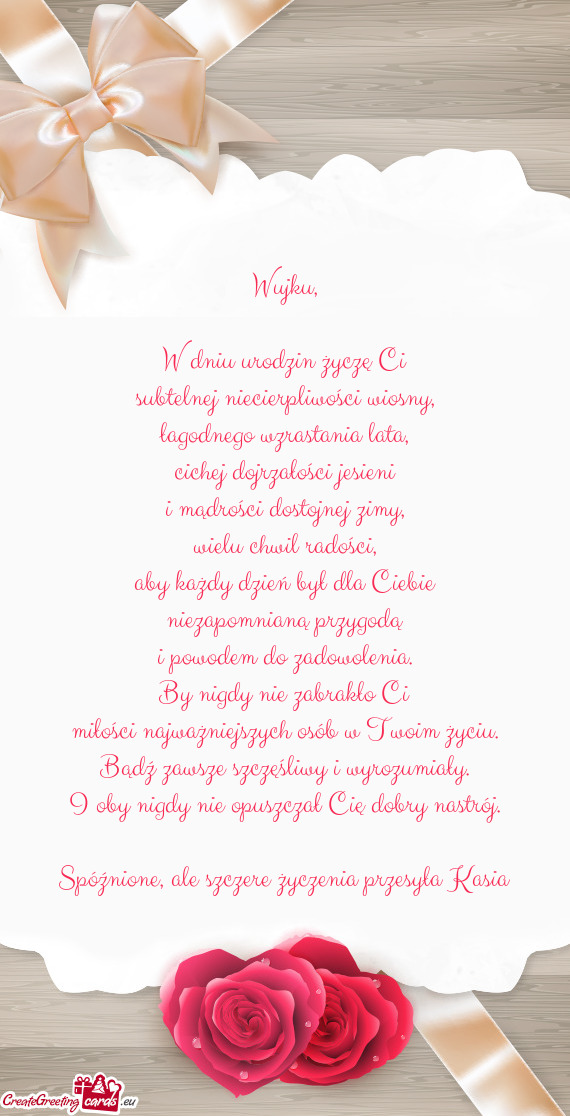 Wujku,
W dniu urodzin życzę Ci
subtelnej niecierpliwości wiosny,
łagodnego wzrastania lata,
cichej dojrzałości jesieni
i mądrości dostojnej zimy,
wielu chwil radości,
aby każdy dzień był dla Ciebie
niezapomnianą przygodą
i powodem do zadowolenia.
By nigdy nie zabrakło Ci
miłości najważniejszych osób w Twoim życiu.
Bądź zawsze szczęśliwy i wyrozumiały.
I oby nigdy nie opuszczał Cię dobry nastrój.
Spóźnione, ale szczere życzenia przesyła Kasia
CreateGreetingcards.eu